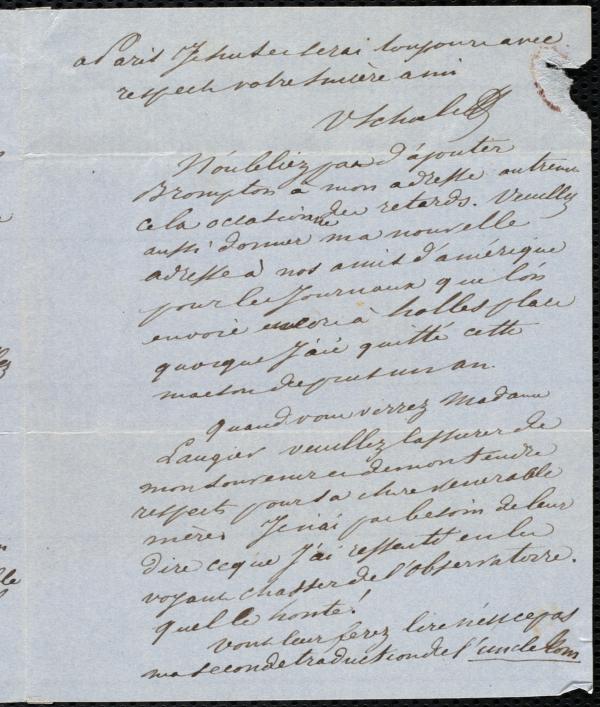 a Paris Je suis et serai toujours avec
respect votre sincère ami
V Schœlcher
N'oubliez pas d'ajouter
Brompton à mon adresse autrem
cela occasionne de retards. Veuillez
aussi donner ma nouvelle
adresse à nos amis d'amérique
pour les Journaux que l'on
envoie encore à holles place
quoique J'aie quitté cette
maison depuis un an.
quand vous verrez Madame
Laugier veuillez l'assurer de
mon souvenir et de mon tendre
respect pour sa chere venerable
mère. Je n'ai pas besoin de leur
dire ce que J'ai ressenti en les
voyant chasser de l'Observatoire.
quelle honte!
vous leur ferez lire n'est ce pas
ma seconde traduction de l'uncle tom